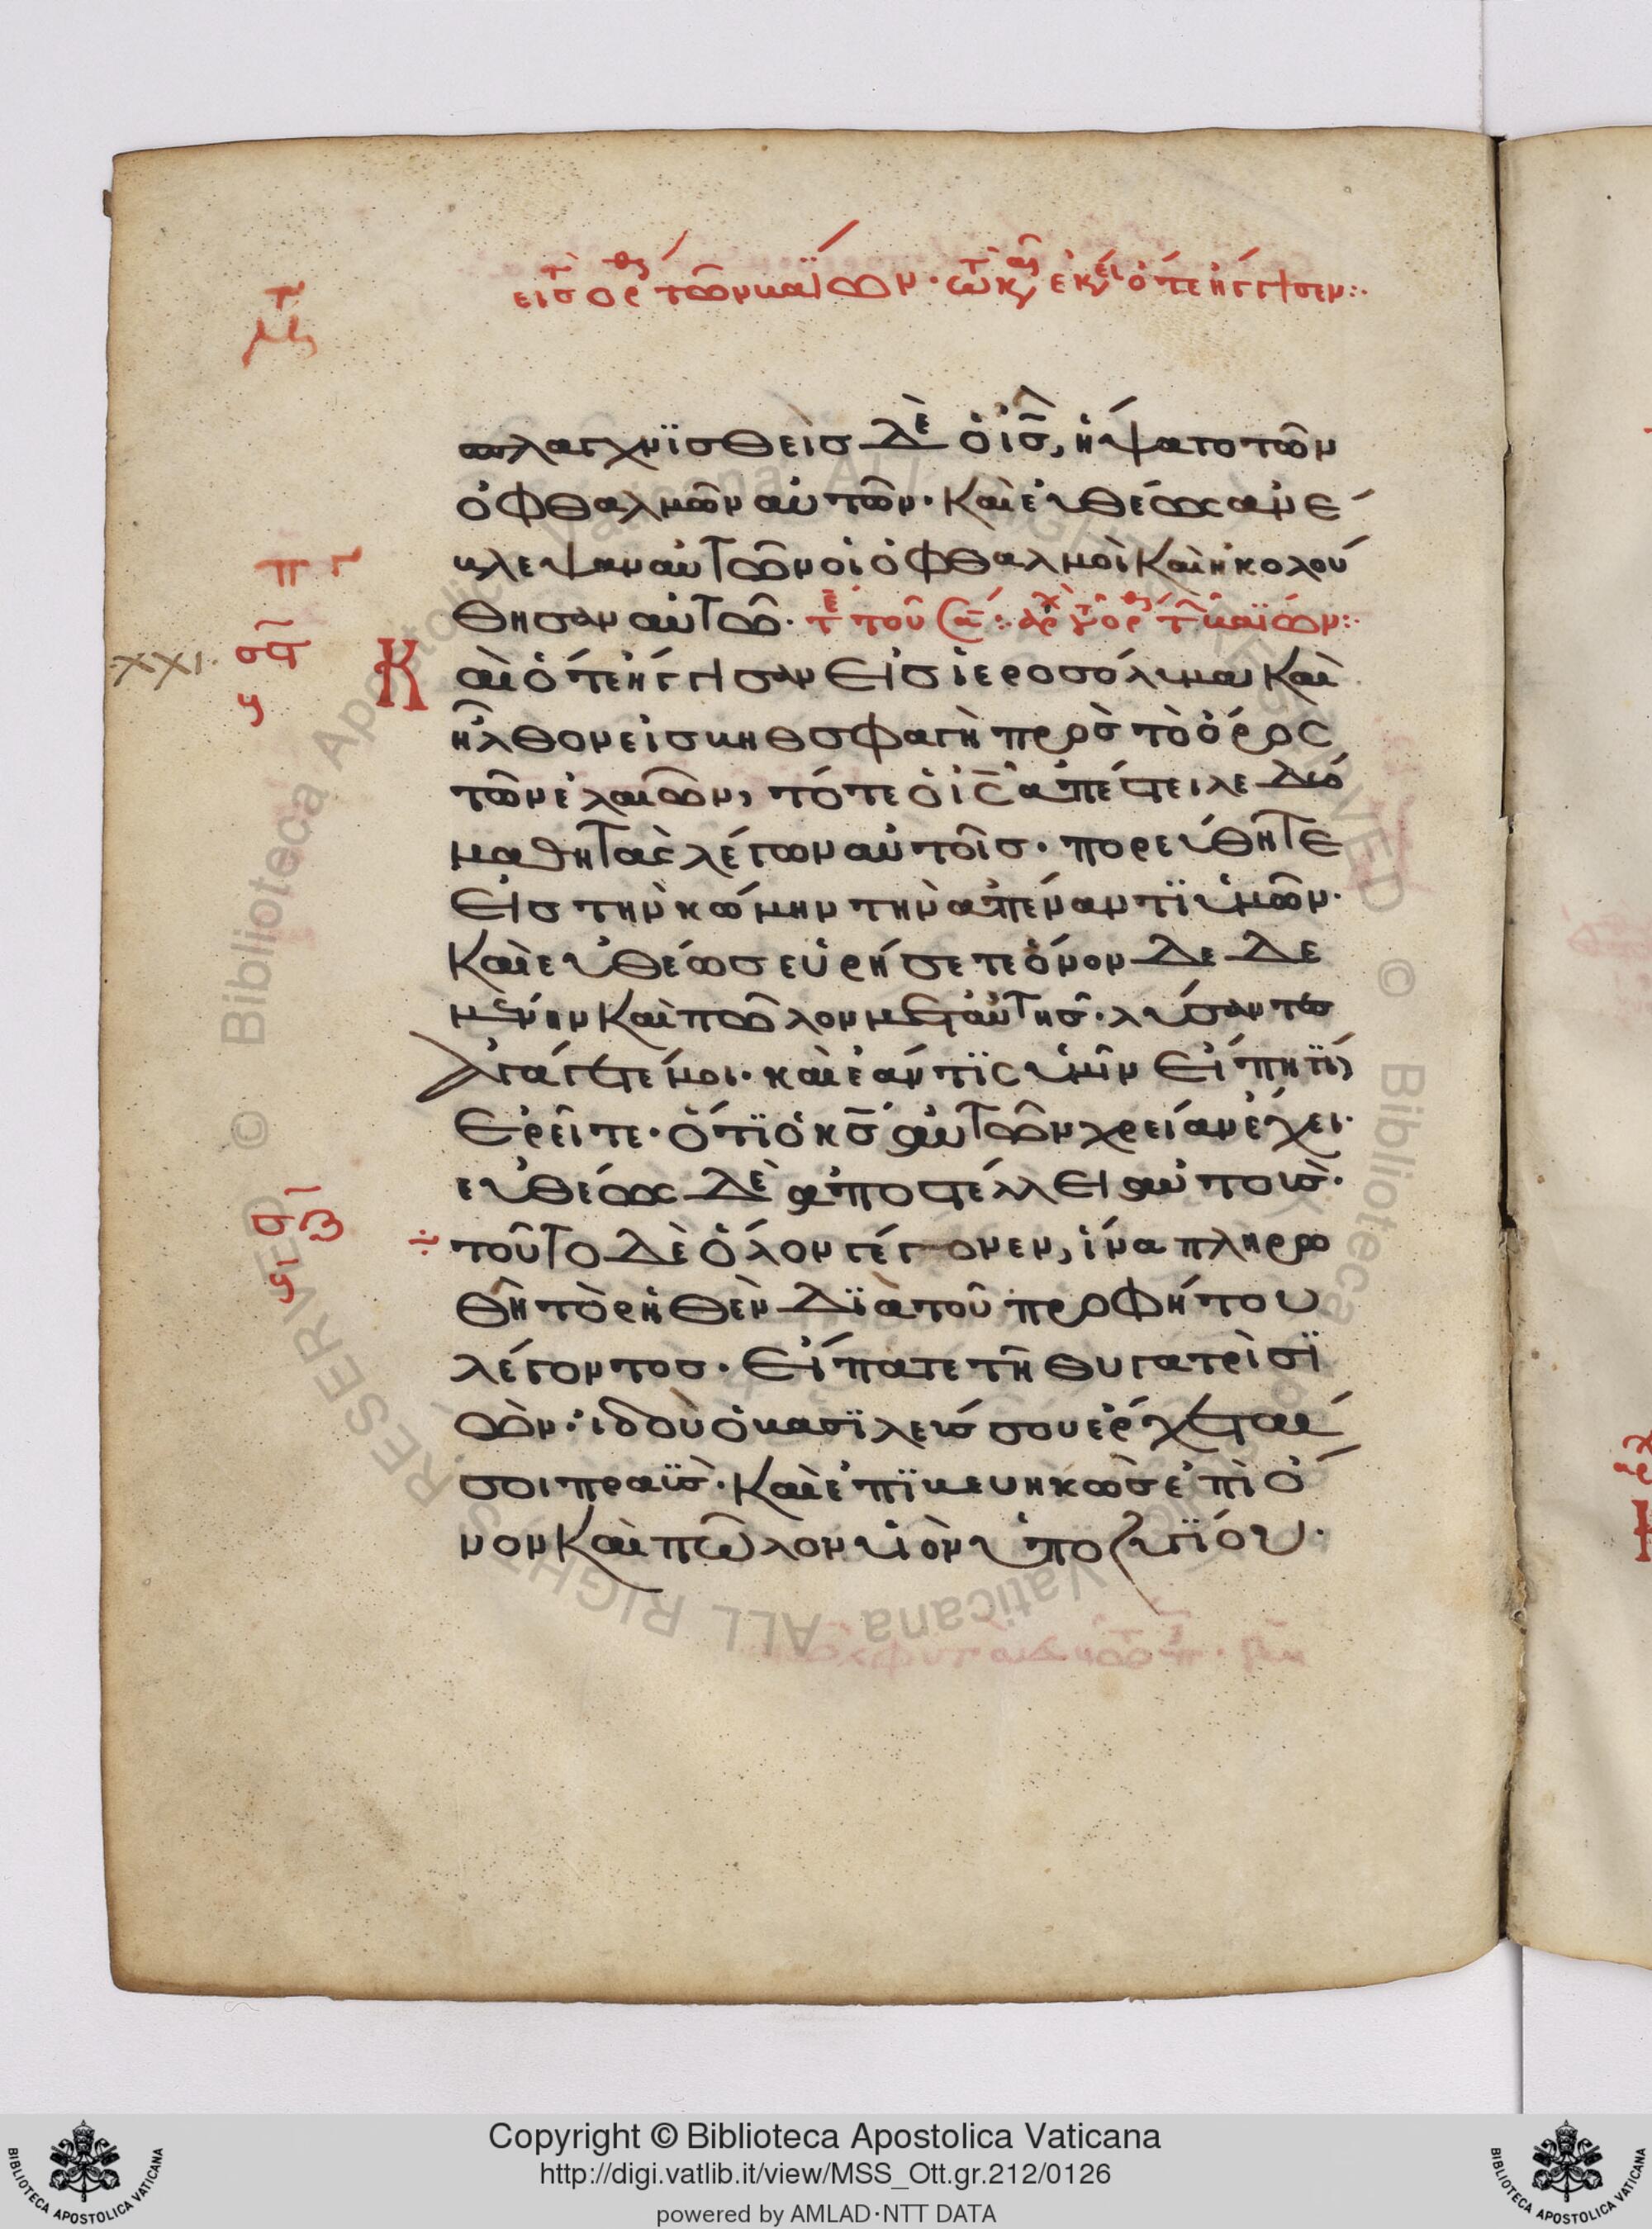 εισ τ ορθ τῶν βαΐων· τῶ κυ εκει ὅτε ἤγγισεν:·
σπλαγχνϊσθεὶσ δὲ ὁ ισ̅, ἥψατο τῶν
ὀφθαλμῶν αὐτῶν· καὶ εὐθέωσ ἀνέ
βλεψαν αὐτῶν οἱ ὀφθαλμοὶ καὶ ἠκολού
πγ
θησαν αὐτῶ· τε τοῦ
XXI·
Καὶ ὅτε ἤγγισαν εἰσ ἱεροσόλυμα καὶ
ἦλθον εἰσ βηθσφαγὴ πρὸσ τὸ ὄροσ
τῶν ἐλαιῶν, τότε ὁ ισ̅ ἀπέστειλε δύο
μαθητὰσ λέγων αὐτοῖσ· πορεύθητε
εἰσ τὴν κώμην τὴν ἀπέναντϊ ὑμῶν·
καὶ εὐθέωσ εὑρήσετε ὄνον δεδε
μένην καὶ πῶλον μετ αὐτῆσ· λύσαντεσ
ἀγάγετέ μοι· καὶ ἐάν τϊσ ὑμῖν εἴπη τϊ,
ἐρεῖτε· ὅτϊ ὁ κσ̅ αὐτῶν χρείαν ἔχει·
εὐθέωσ δὲ ἀποστέλλει αὐτούσ·
τοῦτο δὲ ὅλον γέγονεν, ἵνα πληρω
θῆ τὸ ρηθὲν δϊὰ τοῦ προφήτου
λέγοντοσ· εἴπατε τῆ θυγατρὶ σϊ
ών· ἰδοὺ ὁ βασϊλεύσ σου ἔρχεταί
σοι πραΰσ· καὶ ἐπϊβεβηκὼσ ἐπὶ ὄ
νον καὶ πῶλον υἱὸν ὑποζυγϊου·
Copyright © Biblioteca Apostolica Vaticana
http://digi.vatlib.it/view/MSS_Ott.gr.212/0126
powered by AMLAD·NTT DATA